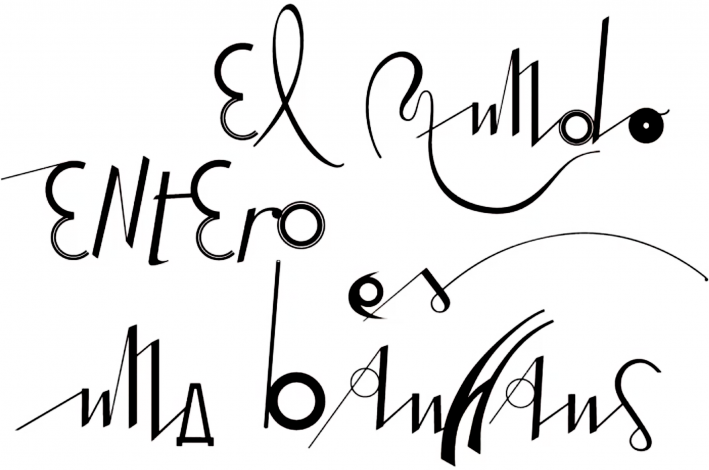 El mundo
entero
es
una bauhaus